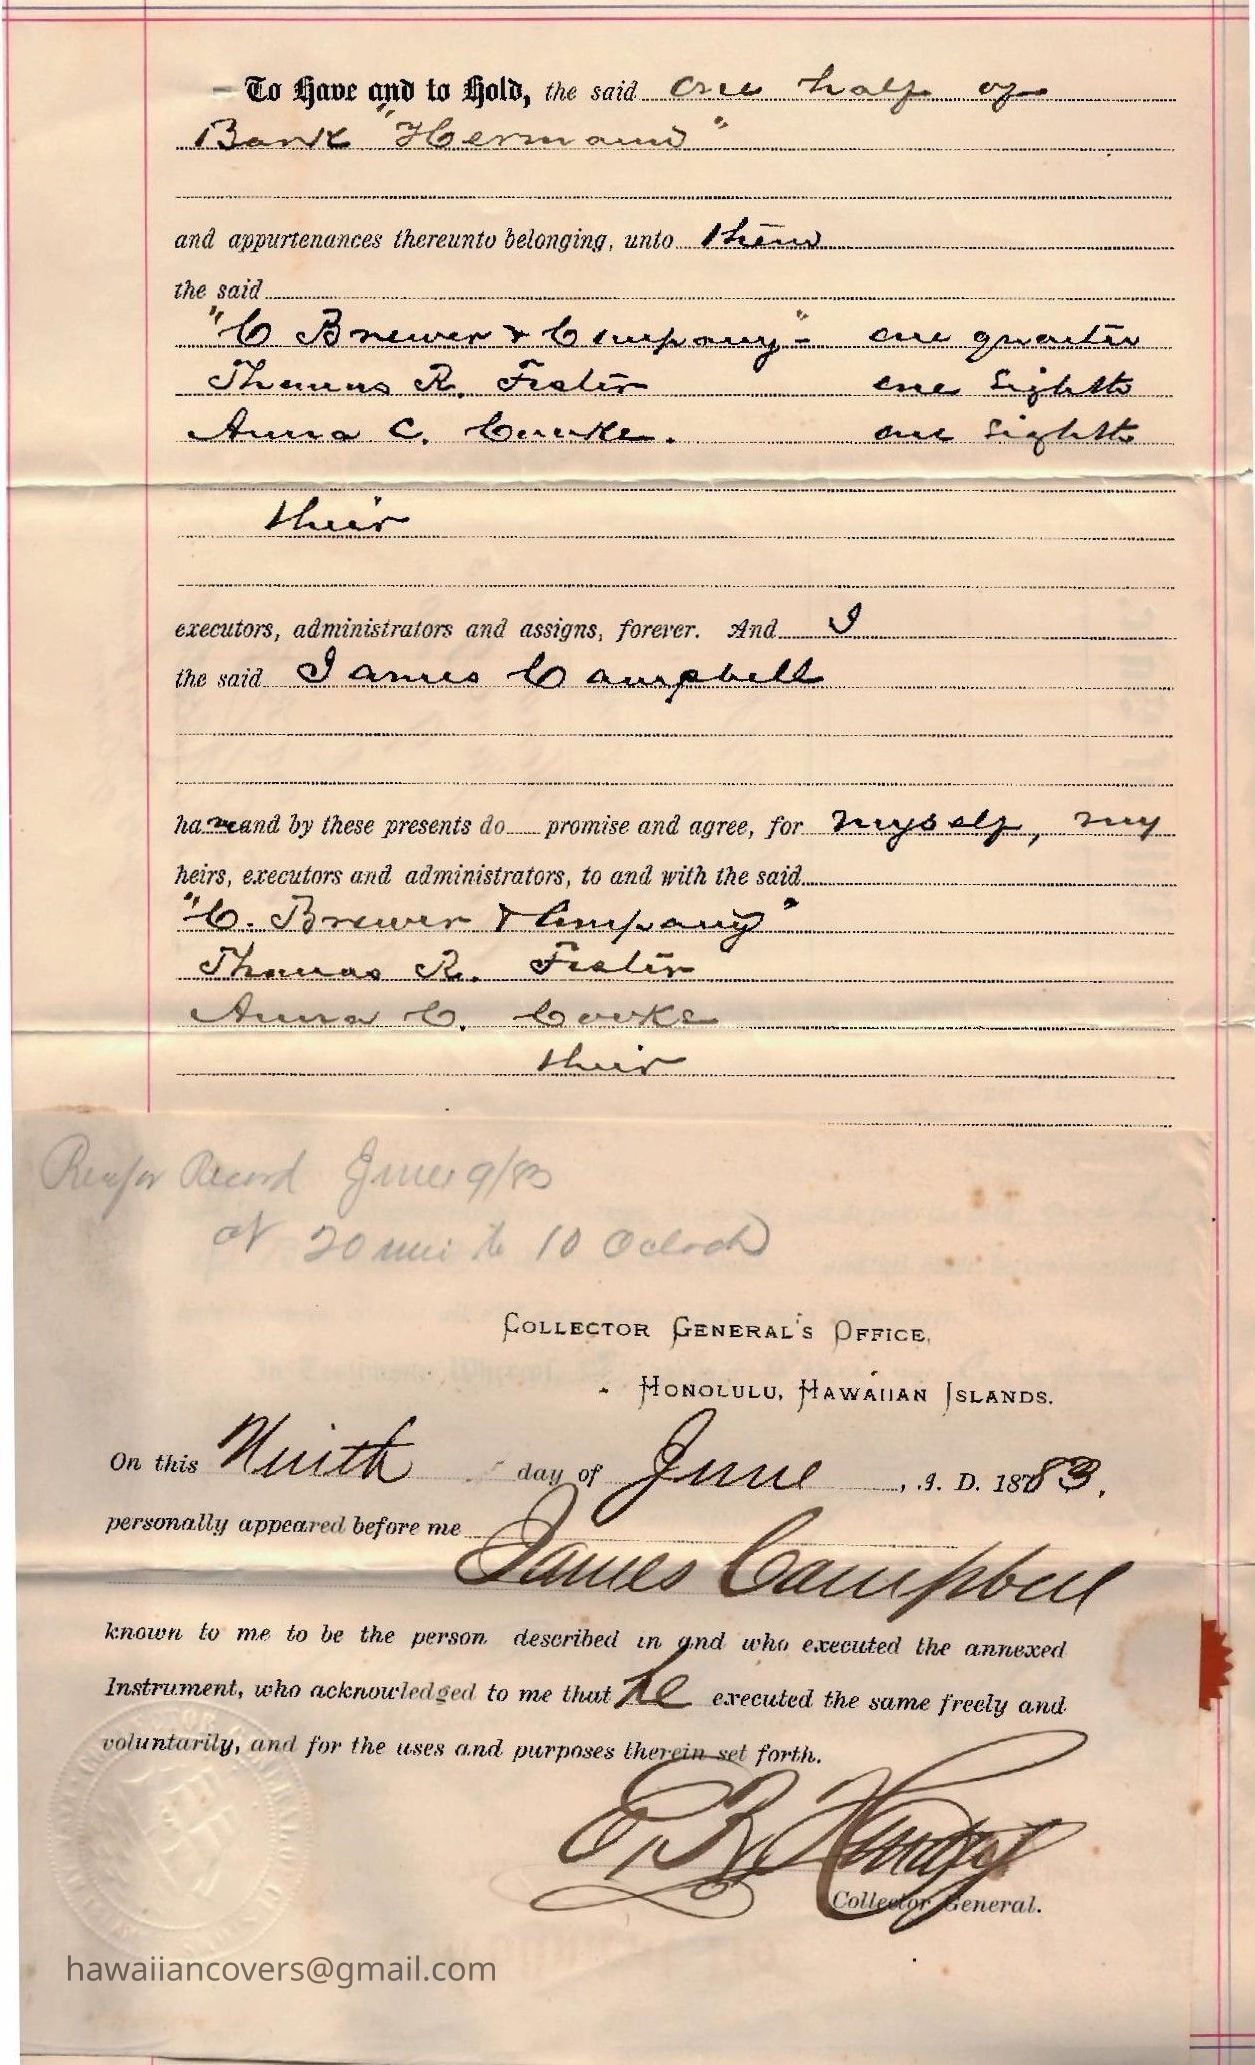 To Have and to Hold, the said one half of
Bark "Hermann"
and appurtenances thereunto belonging, unto them
the said
"C Brewer & Company" one quarter
Thomas R. Foster one Eighth
Anna C. Cooke. one Eighth
their
executors, administrators and assigns, forever. And I
the said James Campbell
have and by these presents do promise and agree, for myself, my
heirs, executors and administrators, to and with the said
"C. Brewer & Company"
Thomas R. Foster
Anna C. Cooke
their
Record June 9/83
at 20 min to 10 Oclock
COLLECTOR GENERAL'S OFFICE,
HONOLULU, HAWAIIAN ISLANDS.
On this Ninth day of June, A. D. 1883.
personally appeared before me
James Campbell
known to me to be the person described in and who executed the annexed
Instrument, who acknowledged to me that he executed the same freely and
voluntarily, and for the uses and purposes therein set forth.
Collector General.
hawaiiancovers@gmail.com